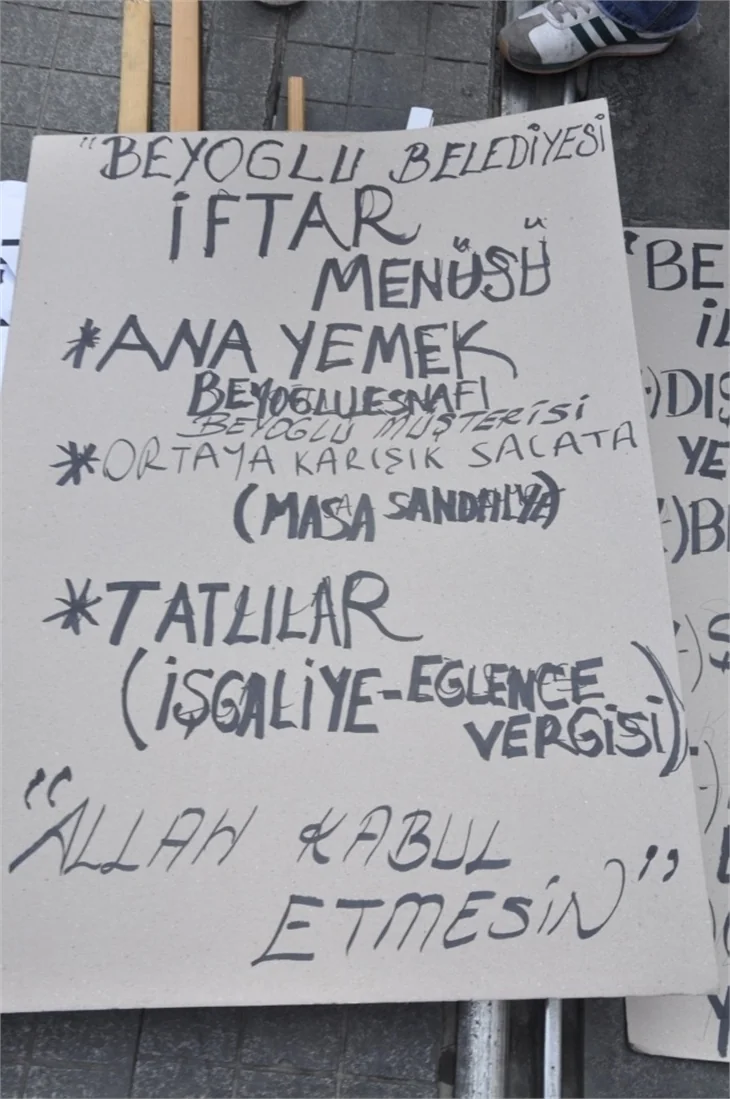 "BEYOGLU BELEDİYESİ
İFTAR
MENÜSÜ
*ANA YEMEK
BEYOGLU ESNAFI
BEYOGLU MÜŞTERİSİ
*ORTAYA KARIŞIK SALATA
(MASA SANDALYE)
*TATLILAR
(İŞGALİYE-EGLENCE
VERGİSİ).
"ALLAH KABUL
ETMESİN"
"BE
İL
)DIŞ
YE
)B